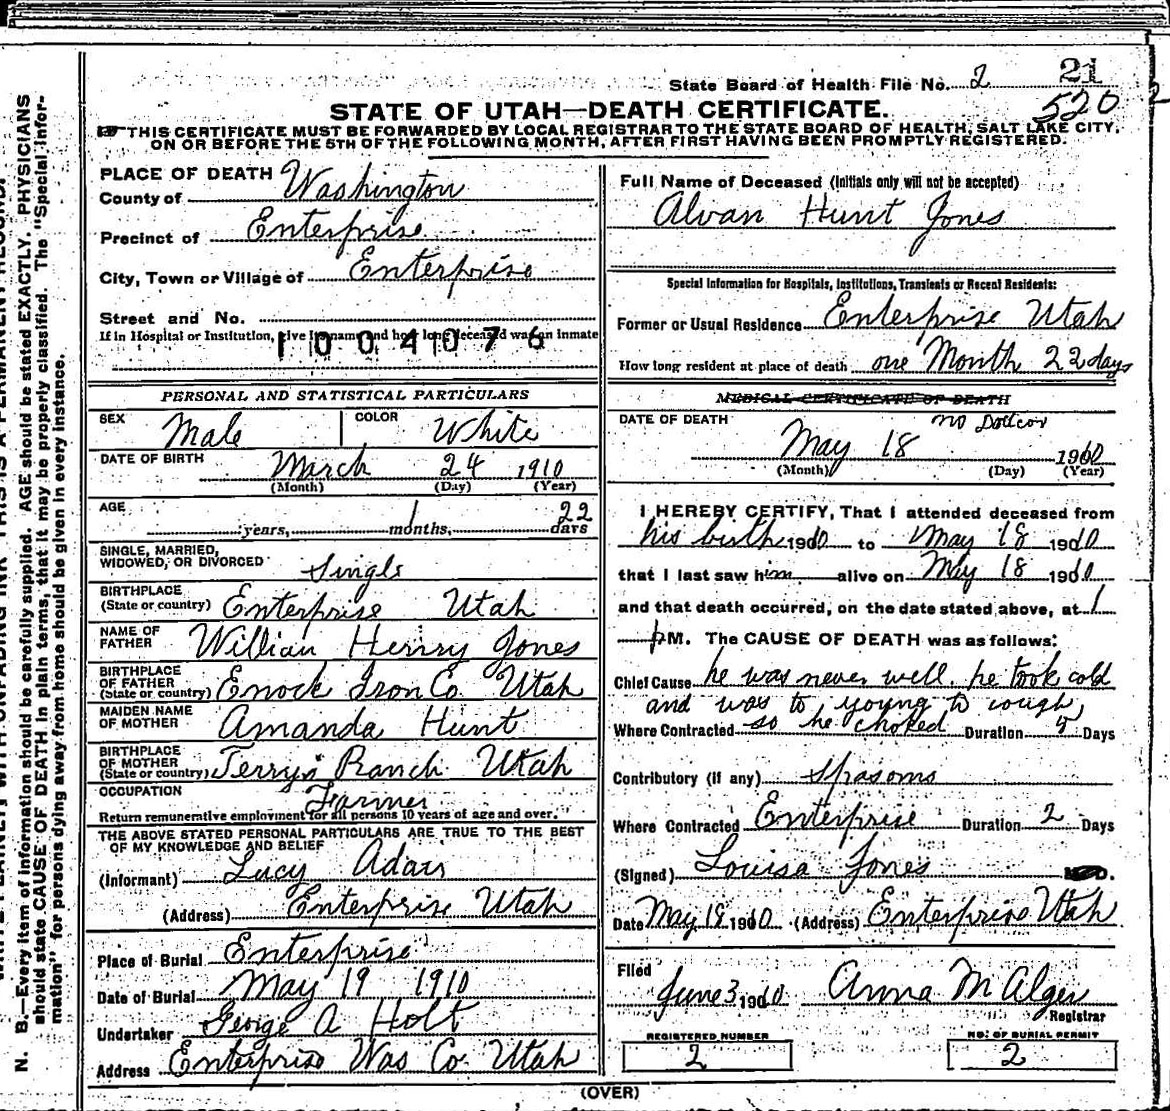 State Board of Health File No. 2 21
520 2
STATE OF UTAH—DEATH CERTIFICATE.
THIS CERTIFICATE MUST BE FORWARDED BY LOCAL REGISTRAR TO THE STATE BOARD OF HEALTH, SALT LAKE CITY,
ON OR BEFORE THE 5TH OF THE FOLLOWING MONTH, AFTER FIRST HAVING BEEN PROMPTLY REGISTERED.
PLACE OF DEATH
County of Washington
Precinct of Enterprise
City, Town or Village of Enterprise
Street and No.
If in Hospital or Institution, give its name and how long deceased was an inmate
1004076
PERSONAL AND STATISTICAL PARTICULARS
SEX Male COLOR White
DATE OF BIRTH March 24 1910
(Month) (Day) (Year)
AGE years, 1 months, 22 days
SINGLE, MARRIED,
WIDOWED, OR DIVORCED Single
BIRTHPLACE
(State or country) Enterprise Utah
NAME OF
FATHER William Henry Jones
BIRTHPLACE
OF FATHER
(State or country) Enock Iron Co. Utah
MAIDEN NAME
OF MOTHER Amanda Hunt
BIRTHPLACE
OF MOTHER
(State or country) Terry's Ranch Utah
OCCUPATION Farmer
Return remunerative employment for all persons 10 years of age and over.
THE ABOVE STATED PERSONAL PARTICULARS ARE TRUE TO THE BEST
OF MY KNOWLEDGE AND BELIEF
(Informant) Lucy Adair
(Address) Enterprise Utah
Place of Burial Enterprise
Date of Burial May 19 1910
Undertaker George A Holt
Address Enterprise Was Co. Utah
Full Name of Deceased (Initials only will not be accepted)
Alvan Hunt Jones
Special Information for Hospitals, Institutions, Transients or Recent Residents:
Former or Usual Residence Enterprise Utah
How long resident at place of death one Month 22 days
MEDICAL CERTIFICATE OF DEATH
DATE OF DEATH no Doctor
May 18 1910
(Month) (Day) (Year)
I HEREBY CERTIFY, That I attended deceased from
his birth 1910 to May 18 1910
that I last saw him alive on May 18 1910
and that death occurred, on the date stated above, at 1
P M. The CAUSE OF DEATH was as follows:
Chief Cause he was never well. he took cold
and was to young to cough,
so he choked
Where Contracted Duration 5 Days
Contributory (if any) Spasoms
Where Contracted Enterprise Duration 2 Days
(Signed) Louisa Jones
Date May 18 1910 (Address) Enterprise Utah
Filed June 3 1910 Anna M Alger
Registrar
REGISTERED NUMBER
2
NO. OF BURIAL PERMIT
2
(OVER)
N. B.—Every item of information should be carefully supplied. AGE should be stated EXACTLY. PHYSICIANS
should state CAUSE OF DEATH in plain terms, that it may be properly classified. The "Special Infor-
mation" for persons dying away from home should be given in every instance.